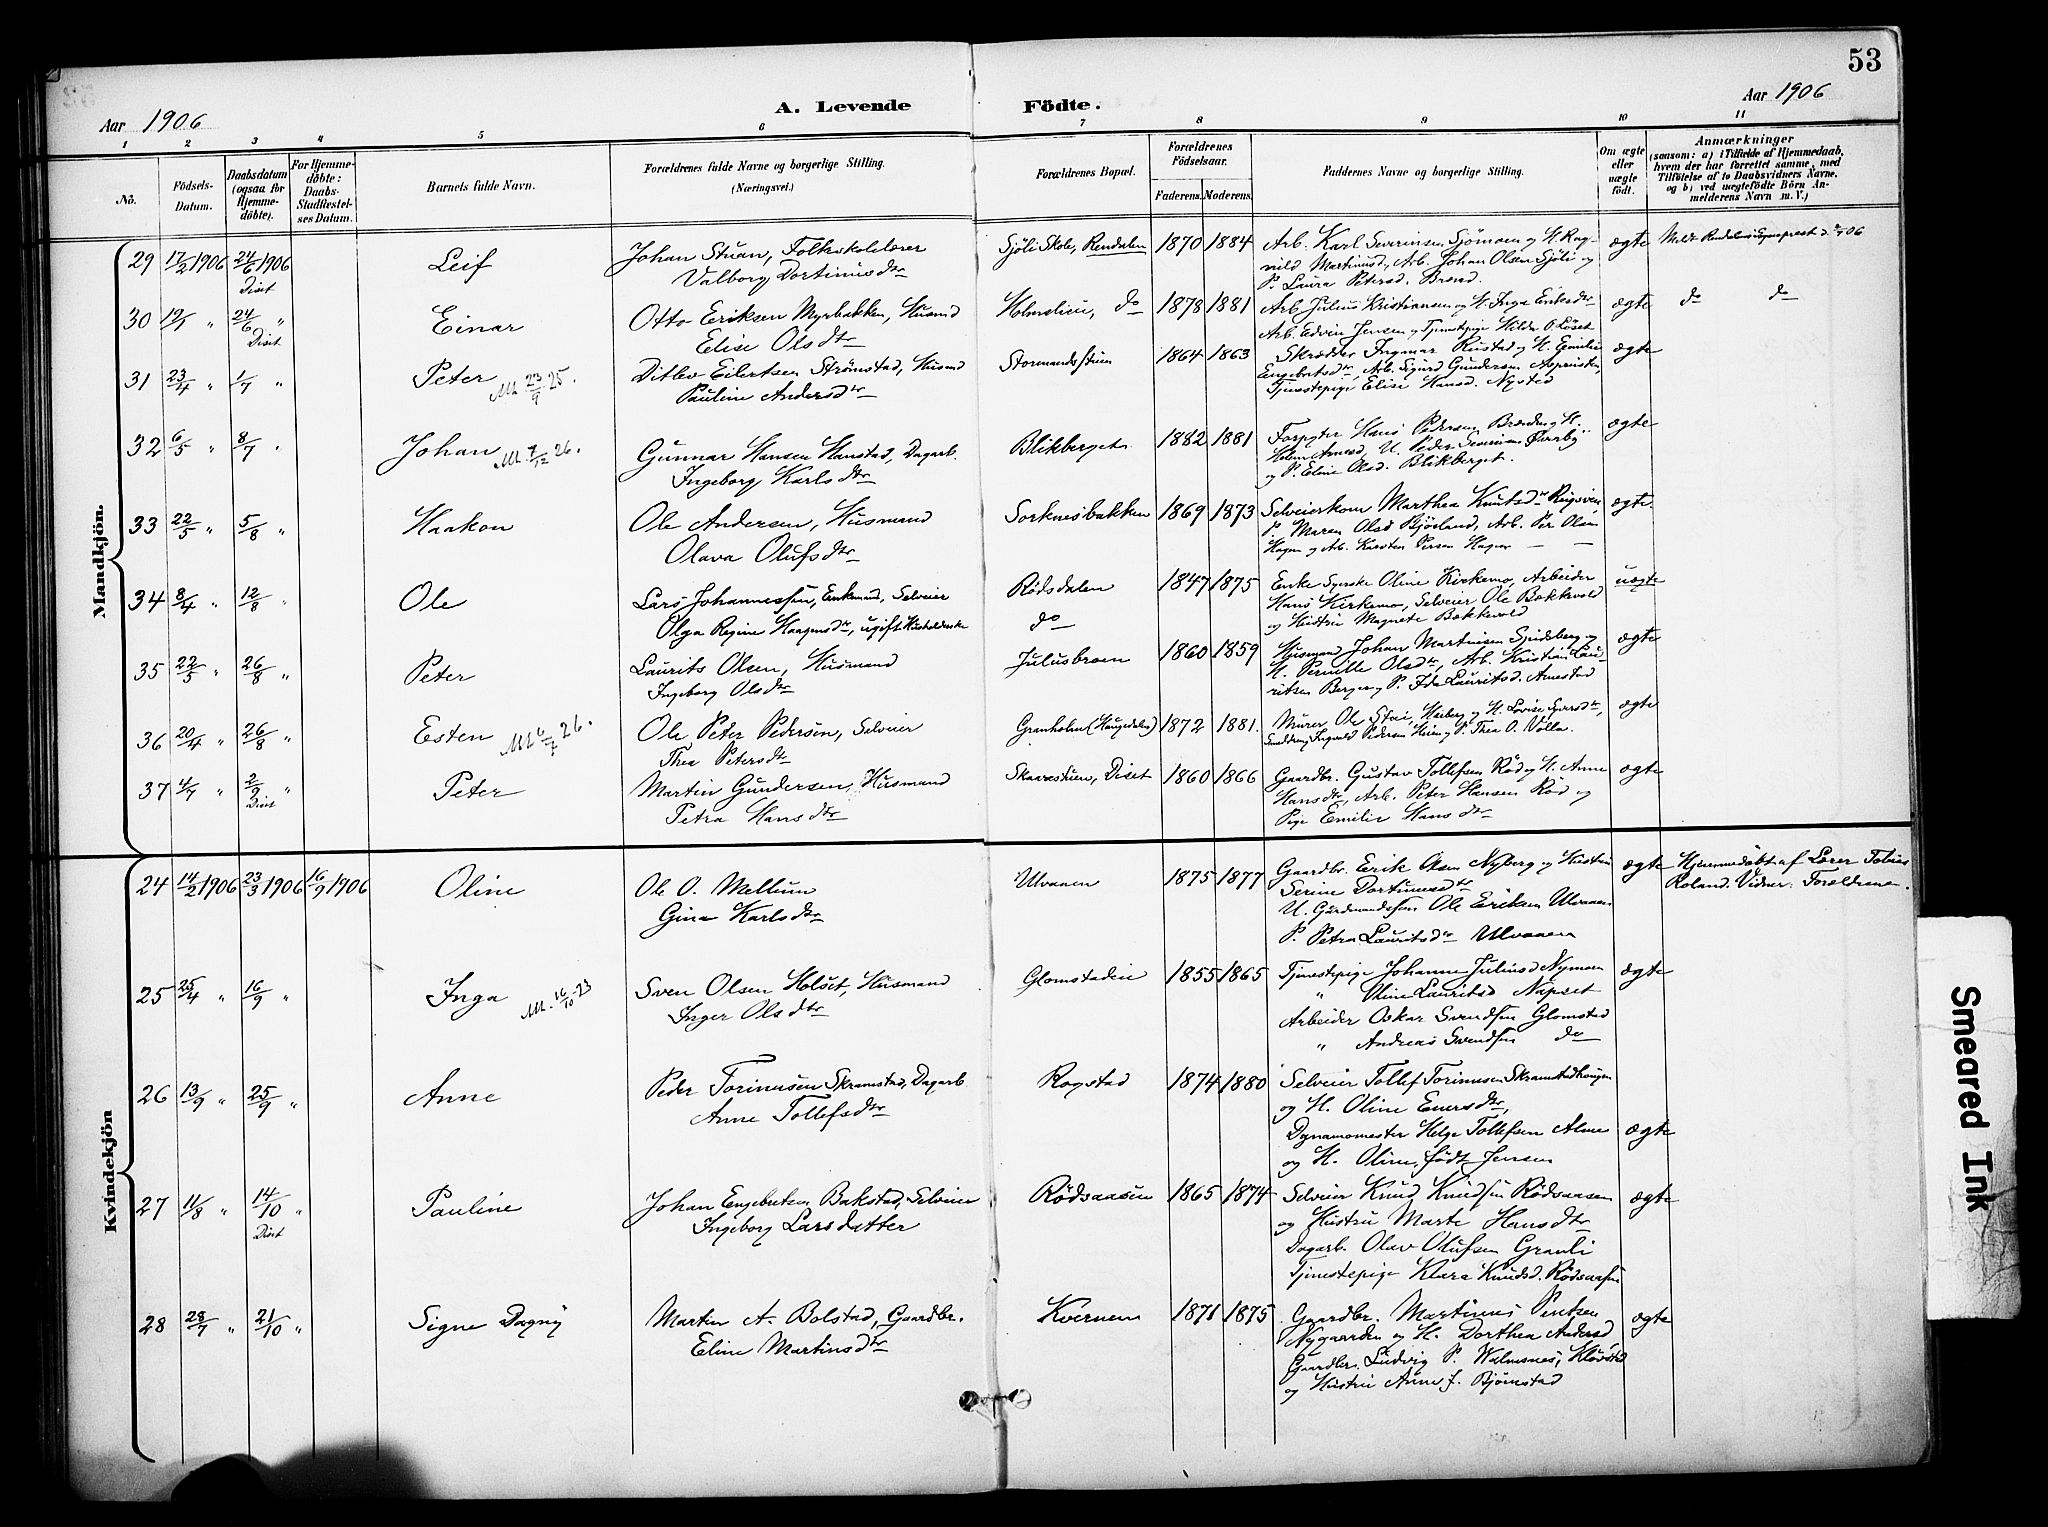 53
Aar 1906
A. Levende Födte.
Aar 1906
1 2 3 4 5 6 7 8 9 10 11
No.
Födsels-Datum.
Daabsdatum (ogsaa for Hjemme-döbte).
For Hjemme-döbte: Daabs-Stadfæstel-ses Datum.
Barnets fulde Navn.
Forældrenes fulde Navne og borgerlige Stilling. (Næringsvei.)
Forældrenes Bopæl.
Forældrenes Födselsaar.
Faderens. Moderens.
Faddernes Navne og borgerlige Stilling.
Om ægte eller uægte födt.
Anmærkninger
(saasom: a) i Tilfælde af Hjemmedaab, hvem der har forrettet samme, med Tilföielse af to Daabsvidners Navne, og b) ved uægtefödte Börn An-melderens Navn m. V.)
Mandkjön.
29 17/2 1906 24/6 1906 Diset Leif
Johan Stuan, Folkeskolelærer
Valborg Dortinusdtr
Sjöli Skole, Rendalen 1870 1884
Arb. Karl Severinsen Sjömoen og H. Rag-
nild Martinusd., Arb. Johan Olsen Sjöli og
P. Laura Petersd.
ægte
30 12/1 " 24/6 " Diset Einar
Otto Eriksen Myrbakken, Husmd
Elise Olsdtr
Holmslien, do 1878 1881
Arb. Julius Kristiansen og H. Inga
Arb. Edvin Jensen og Tjenestepige Hilda O. Löset
ægte do do
31 23/4 " 1/7 " Peter 23/9 25.
Ditlev Eilertsen Strömstad, Husmd
Pauline Andersdtr
Stormandsstuen 1864 1863
Skrædder Ingmar Rustad og H. Emilie
Engebretsdtr, Arb. Sigurd Gundersen
Tjenestepige Elise Hansd. Nysted
ægte
32 6/5 " 8/7 " Johan 7/12 26.
Gunnar Hansen Hanstad, Dagarb.
Ingeborg Karlsdtr
Blikberget 1882 1881
Forpgter Hans Pedersen
U. Peder Severinsen
og P. Eline Olsd. Blikberget.
ægte
33 22/5 " 5/8 " Haakon
Ole Andersen, Husmand
Olava Olufsdtr
Sorknesbakken 1869 1873
Selveierkone Marthea Knutsdtr
P. Maren Olsd Bjöeland, Arb. Per Olsen
Hagen og Arb. Karsten Persen Hagen
ægte.
34 8/4 " 12/8 " Ole
Lars Johannessen, Enkemand, Selveier
Olga Regine Haagensdtr, ugift Husholderske
Rödsdalen 1847 1875
do
Enke Syerske Oline Kirkemo, Arbeider
Hans Kirkemo, Selveier Ole Bækkevold
og Hustru Magnete Bækkevold
uægte
35 22/5 " 26/8 " Peter
Laurits Olsen, Husmand
Ingeborg Olsdtr
Julusbroen 1860 1859
Husmand Johan Martinsen Spidsberg og
H. Pernille Olsdtr, Arb. Kristian Lau-
ritsen Berger og P. Ida Lauritsd. Arnestad
ægte
36 20/4 " 26/8 " Esten 6/7 26.
Ole Peter Pedersen, Selveier
Thea Petersdtr
Granholen (Haugedalen) 1872 1881.
Murer Ole Stai, Harberg og H. Lovise Syversdtr,
Ingvald Pedersen Heim og P. Thea O. Volla.
ægte
37 4/7 " 2/9 " Diset Peter
Martin Gundersen, Husmand
Petra Hansdtr
Skarestuen, Diset 1860 1866
Gaardbr. Gustav Tollefsen Röd og H. Anne
Hansdtr, Arb. Peter Hansen Röd og
Pige Emilie Hansdtr
ægte
Kvindekjön
24 14/2 1906 23/3 1906 16/9 1906 Oline
Ole O. Mellum
Gina Karlsdtr
Ulvaaen 1875 1877
Gaardbr. Erik Olsen Nyberg og Hustru
Serine Dortinusdtr
U. Gardmandssön Ole Eriksen Ulvaaen
P. Petra Lauritsdtr Ulvaaen
ægte
Hjemmedöbt af Lærer Tobias
Roland. Vidner: Forældrene.
25 25/4 " 16/9 " Inga 16/10 23
Sven Olsen Holset, Husmand
Inger Olsdtr
Glomstadeie 1855 1865
Tjenestepige Johanne Juliusd Nymoen
" Oline Lauritsd Næpset
Arbeider Oskar Svendsen Glomstad
" Andreas Svendsen do
ægte
26 13/9 " 25/9 " Anne
Peder Torinusen Skramstad, Dagarb.
Anne Tollefsdtr
Rogstad 1874 1880
Selveier Tollef Torinusen Skramstadhaugen
og H. Oline Enersdtr,
Dynamomester Helge Tollefsen Alme
og H. Oline, födt Jensen
ægte
27 11/8 " 14/10 " Diset Pauline
Johan Engebretsen Bakstad, Selveier
Ingeborg Larsdatter
Rödsaasen 1865 1874
Selveier Knud Knudsen Rödsaasen
og Hustru Marte Hansdtr
Dagarb. Olav Olufsen Granli
Tjenestepige Klara Knudsd. Rödsaasen
ægte
28 28/7 " 21/10 " Signe Dagny
Martin A. Bolstad, Gaardbr.
Eline Martinsdtr
Kvernen 1871 1875
Gaardbr. Martinus
Nygaarden og H. Dorthea Andersd
Gaardbr. Ludvig P.
og Hustru Anne f. Björnstad
ægte
Smeared Ink